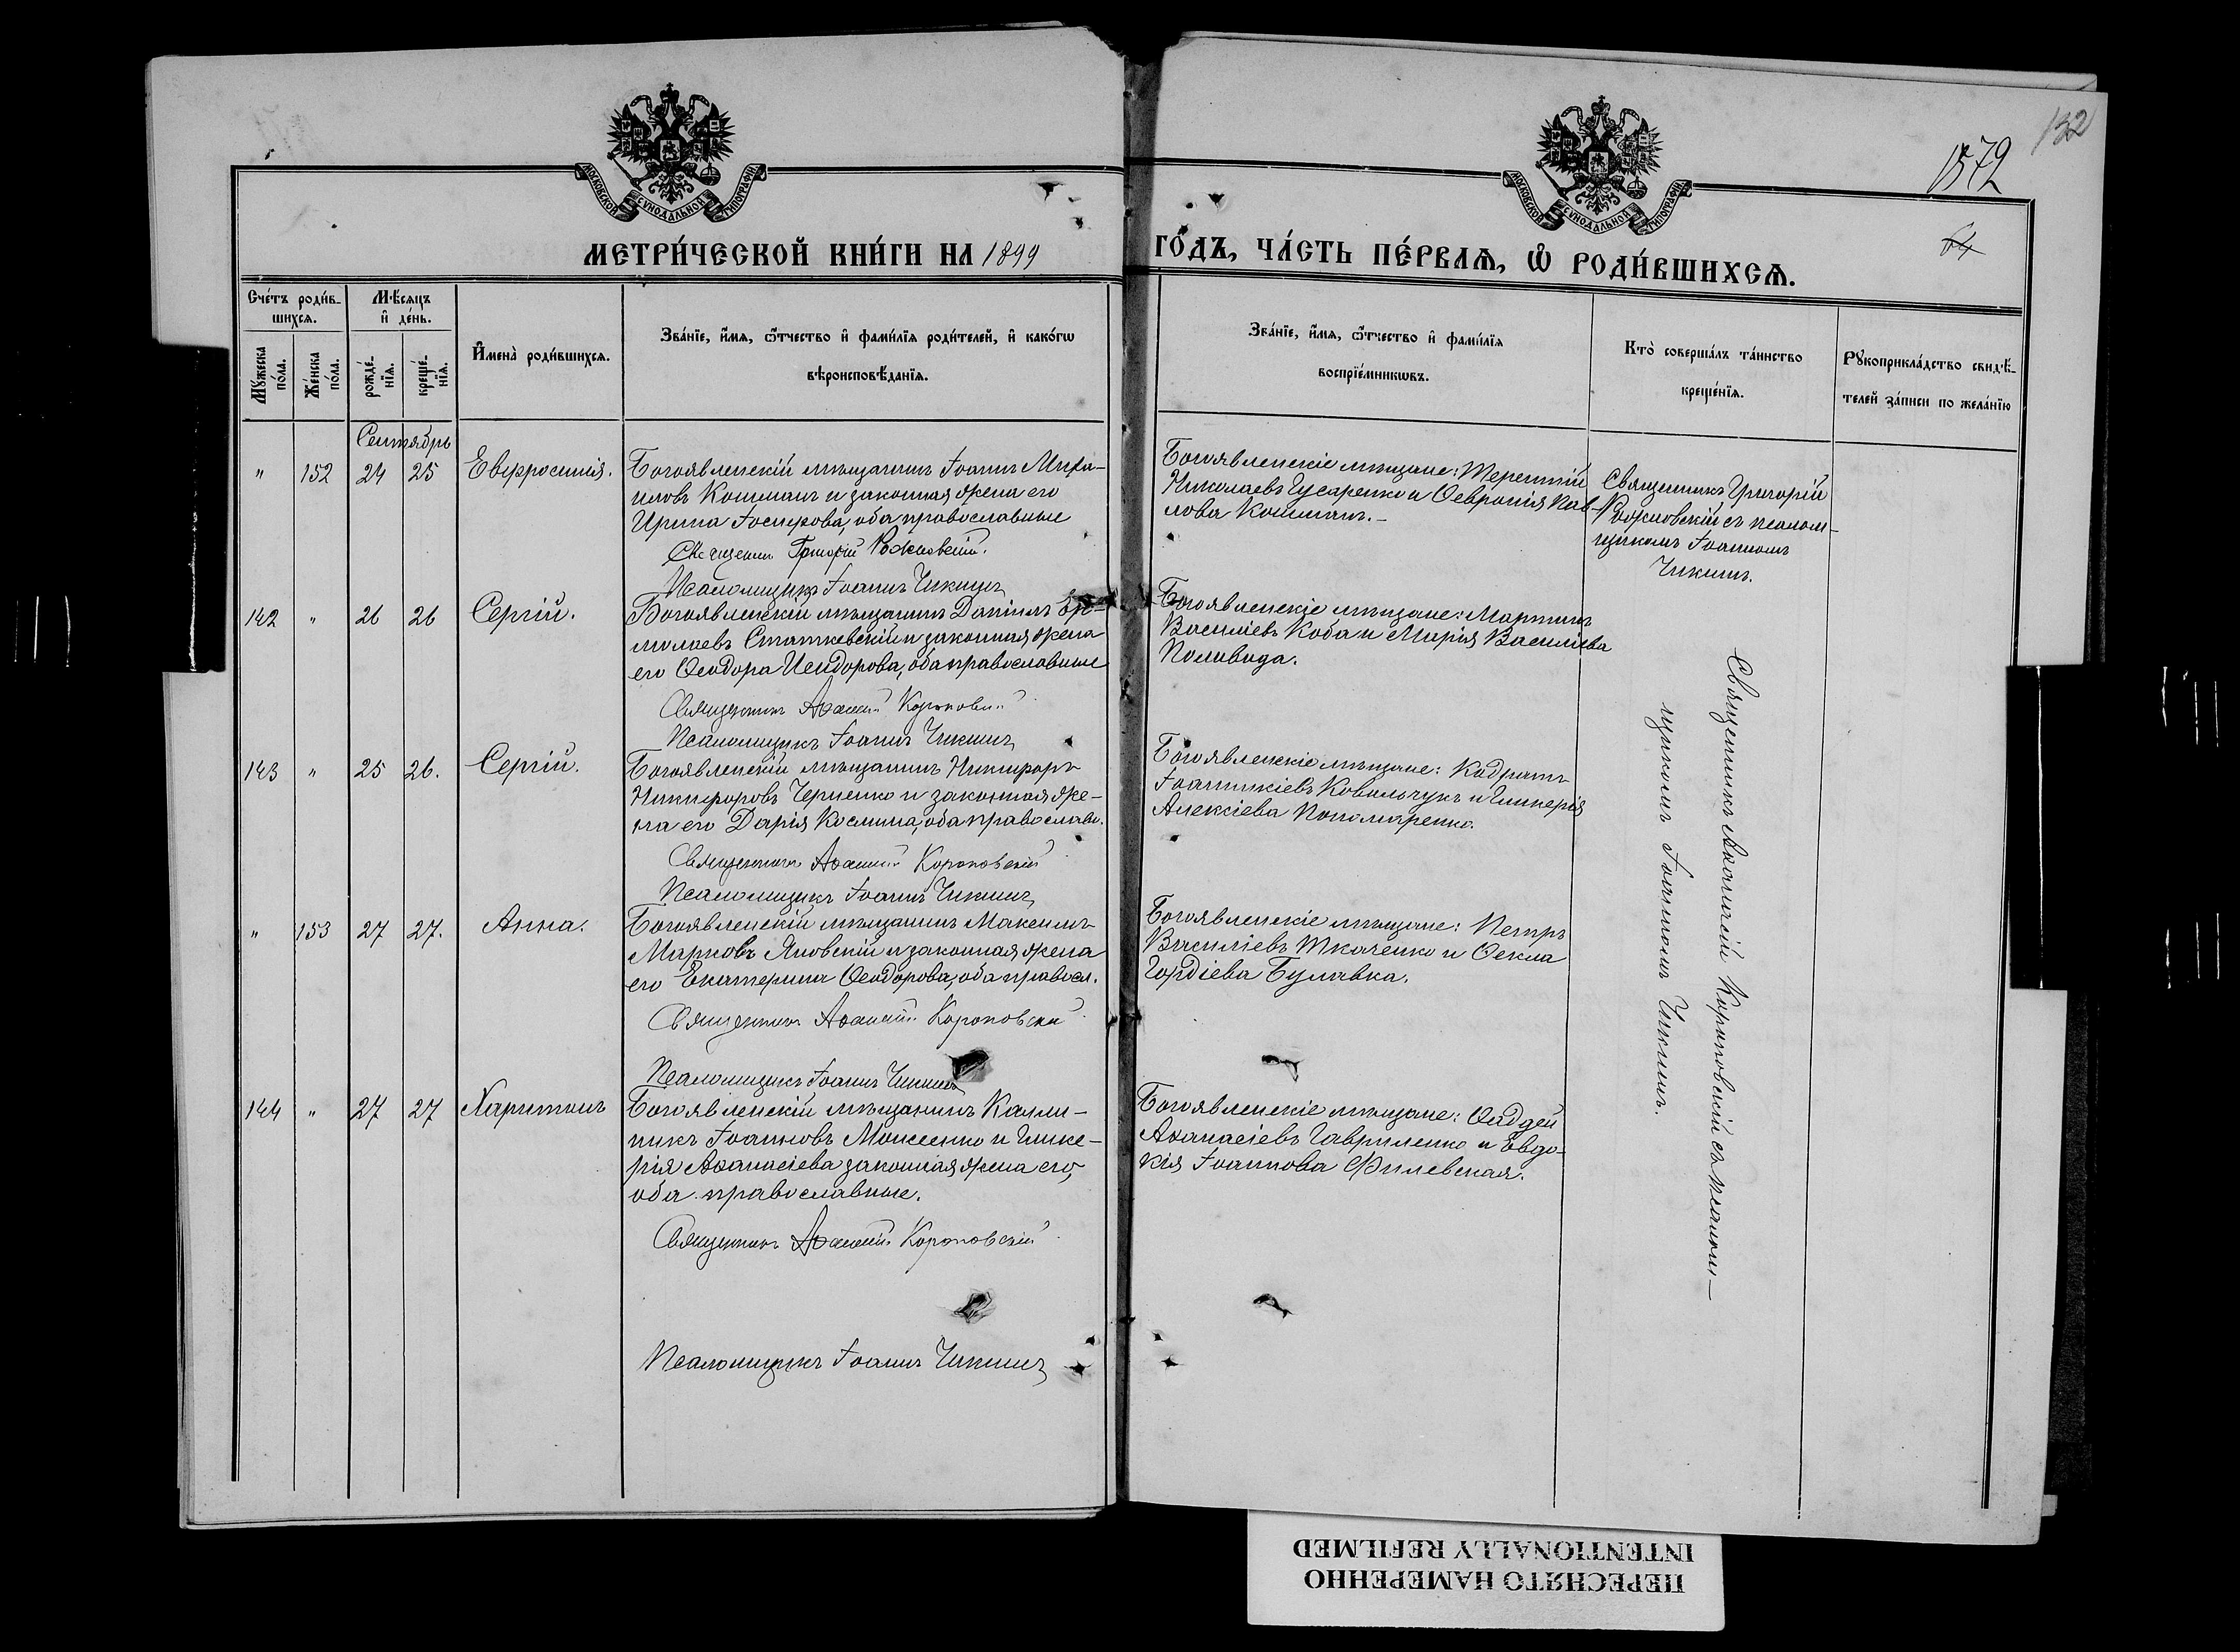 132
1579
64
МОСКОВСКОЙ СѴНОДАЛЬНОЙ ТИПОГРАФІИ
МОСКОВСКОЙ СѴНОДАЛЬНОЙ ТИПОГРАФІИ
МЕТРИ́ЧЕСКОЙ КНИ́ГИ НА 1899 ГО́ДЪ, ЧА́СТЬ ПЕ́РВАѦ, Ѡ҆ РОДИ́ВШИХСѦ.
Сче́тъ роди́в-
шихсѧ.
Мѣ́сѧцъ
и҆ де́нь.
Мꙋ́жеска
по́ла.
Же́нска
по́ла.
рожде́-
нїѧ.
креще́-
нїѧ.
И҆мена̀ роди́вшихсѧ.
Зва́нїе, и҆́мѧ, ѻ҆́тчество и҆ фами́лїѧ роди́телей, и҆ како́гѡ
вѣроисповѣ́данїѧ.
Зва́нїе, и҆́мѧ, ѻ҆́тчество и҆ фами́лїѧ
воспрїе́мникѡвъ.
Кто̀ соверша́лъ та́инство
креще́нїѧ.
Рꙋкоприкла́дство свидѣ́-
телей за́писи по жела́нїю
Сентябрь
" 152 24 25 Евфросинія.
Богоявленскій мѣщанинъ Іоаннъ Миха-
иловъ Кошманъ и законная жена его
Ирина Іосифова, оба православные
Священник Григорій Рожновскій.
Псаломщикъ Іоаннъ Чикинъ
Богоявленскіе мѣщане: Терентій
Николаевъ Гусаренко и Ѳевронія Пав-
лова Кошманъ.-
Священникъ Григорій
Рожновскій съ псалом-
щикомъ Іоанномъ
Чикинъ.
142 " 26 26 Сергій.
Богоявленскій мѣщанинъ Даніилъ Ер-
молаевъ Статкевскій и законная жена
его Ѳеодора Исидорова, оба православные
Священникъ Аѳанасій Короновскій
Псаломщикъ Іоаннъ Чикинъ
Богоявленскіе мѣщане: Мартинъ
Василіевъ Коба и Марія Василіева
Поливода.
143 " 25 26. Сергій.
Богоявленскій мѣщанинъ Никифоръ
Никифоровъ Черненко и законная же-
на его Дарія Космина, оба православн.
Священникъ Аѳанасій Короновскій
Псаломщикъ Іоаннъ Чикинъ
Богоявленскіе мѣщане: Кодратъ
Іоанникіевъ Ковальчукъ и Гликерія
Алексіева Пономаренко.
" 153 27 27. Анна.
Богоявленскій мѣщанинъ Максимъ
Марковъ Яновскій и законная жена
его Екатерина Ѳеодорова, оба правосл.
Священникъ Аѳанасій Короновскій
Псаломщикъ Іоаннъ Чикинъ
Богоявленскіе мѣщане: Петръ
Василіевъ Ткаченко и Ѳекла
Гордіева Булавка.
144 " 27 27 Харитонъ
Богоявленскій мѣщанинъ Калли-
никъ Іоанновъ Моисеенко и Глике-
рія Аѳанасіева законная жена его,
оба православные.
Священникъ Аѳанасій Короновскій
Псаломщикъ Іоаннъ Чикинъ
Богоявленскіе мѣщане: Ѳаддей
Аѳанасіевъ Гавриленко и Евдо-
кія Іоаннова Филевская.
Священникъ Аѳанасій Короновскій съ псалом-
щикомъ Іоанномъ Чикинъ.
ПЕРЕСНЯТО НАМЕРЕННО
INTENTIONALLY REFILMED